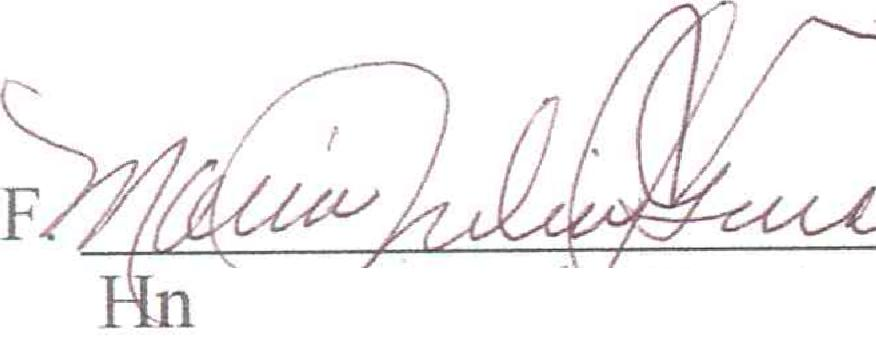 F. Maria Julia
Hn